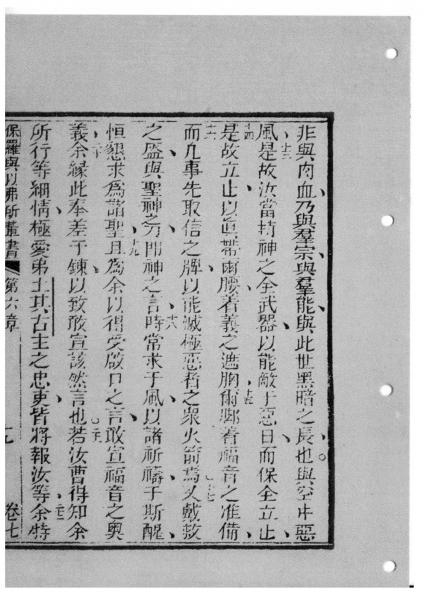 非與肉血乃與羣宗與羣能與此世黑暗之長也與空中惡
十三
風是故汝當持神之全武器以能敵于惡日而保全立止
十四
是故立止以眞帶爾腰着義之遮胸爾脚着福音之准備
十五
十六
而凡事先取信之牌以能滅極惡者之衆火箭爲又戴救
十七
之盔與聖神之刀即神之言時常求于風以諸祈禱于斯醒
十八
恒懇求爲諸聖且爲余以得受啟口之言敢宣福音之奧
十九
義余緣此奉差于鍊以致敢宣該然言也若汝曹得知余
二十
二一
所行等細情極愛弟士其古主之忠吏皆將報汝等余特
二二
保羅與以弗所輩書 第六章 九 卷七